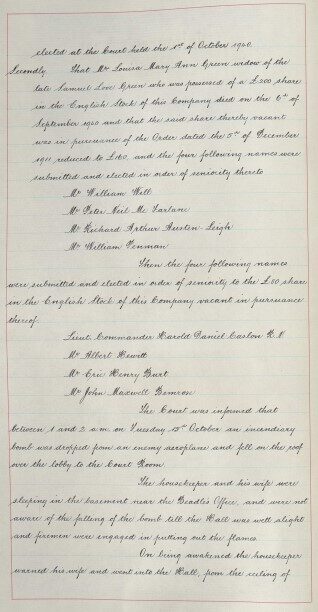 elected at the Court held the 1st of October 1940.
Secondly That Mrs Louisa Mary Ann Green widow of the
late Samuel Love Green who was possessed of a £200 share
in the English Stock of this Company died on the 6th of
September 1940 and that the said share thereby vacant
was in pursuance of the Order dated the 5th of December
1911 reduced to £160, and the four following names were
submitted and elected in order of seniority thereto
Mr William Will
Mr Peter Neil Mc Farlane
Mr Richard Arthur Austen-Leigh
Mr William Penman
Then the four following names
were submitted and elected in order of seniority to the £80 share
in the English Stock of this Company vacant in pursuance
thereof.
Lieut. Commander Harold Daniel Caslon R.N
Mr Albert Hewitt
Mr Eric Henry Burt
Mr John Maxwell
The Court was informed that
between 1 and 2 a.m. on Tuesday, 15th October an incendiary
bomb was dropped from an enemy aeroplane and fell on the roof
over the lobby to the Court Room.
The housekeeper and his wife were
sleeping in the basement near the Beadle's Office, and were not
aware of the falling of the bomb till the Hall was well alight
and firemen were engaged in putting out the flames.
On being awakened the housekeeper
warned his wife and went into the Hall, from the ceiling of